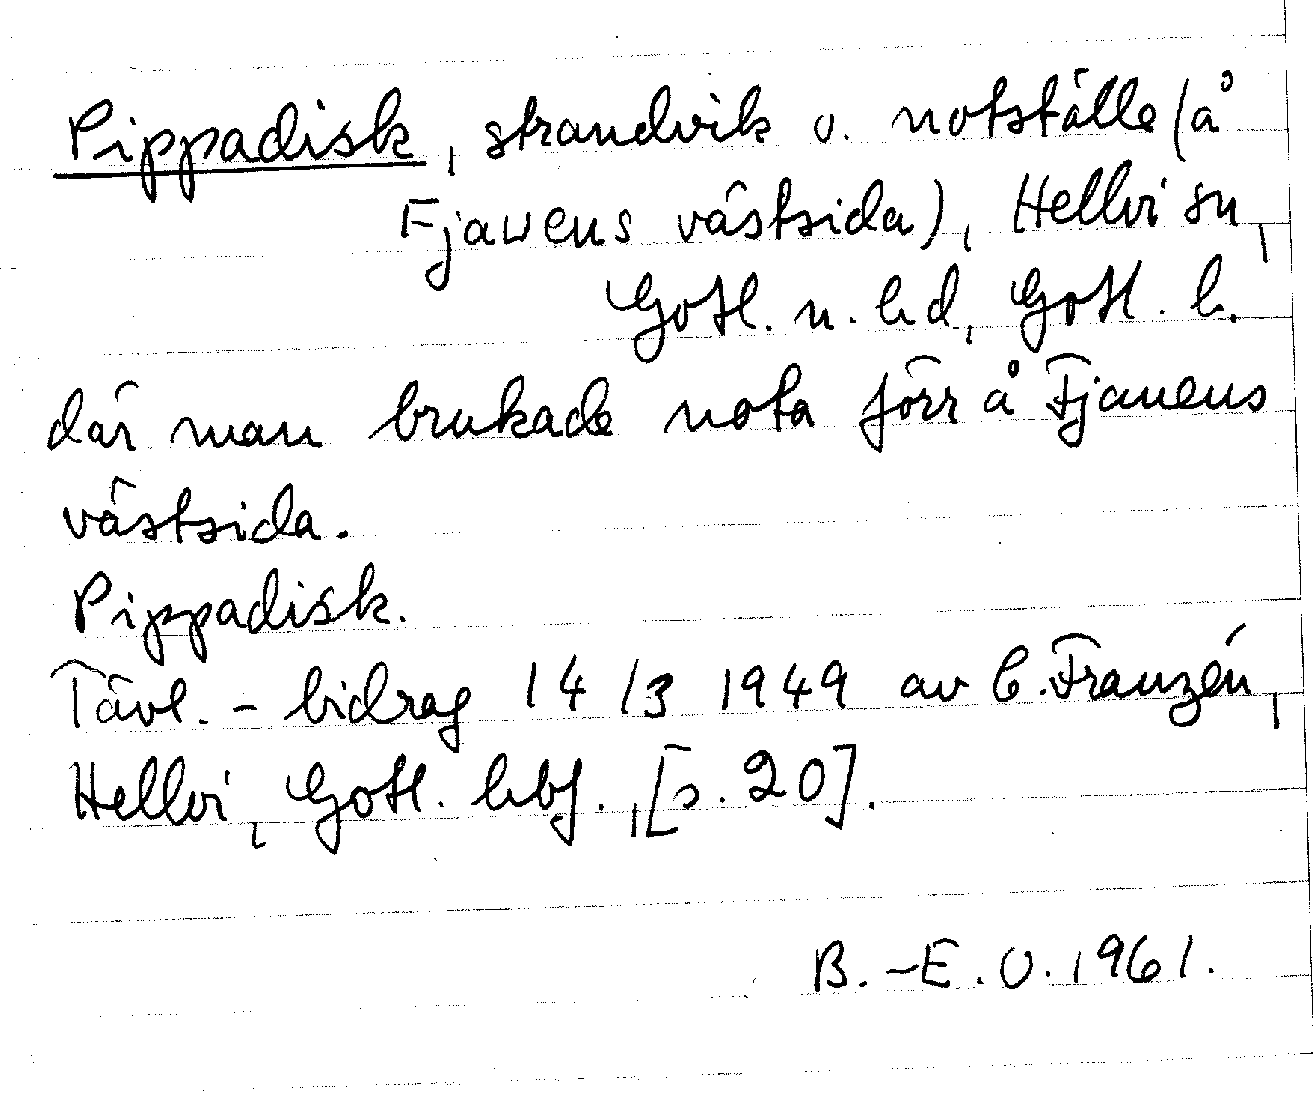 Pippadisk, strandvik o. notställe (å
Fjauens västsida), Hellvi sn,
Gotl. n. hd, Gotl. l.
där man brukade nota förr å Fjauens
västsida.
Pippadisk.
Tävl. - bidrag 14/3 1949 av C. Franzén,
Hellvi, Gotl. hbf., [s. 20].
B.-E. O. 1961.